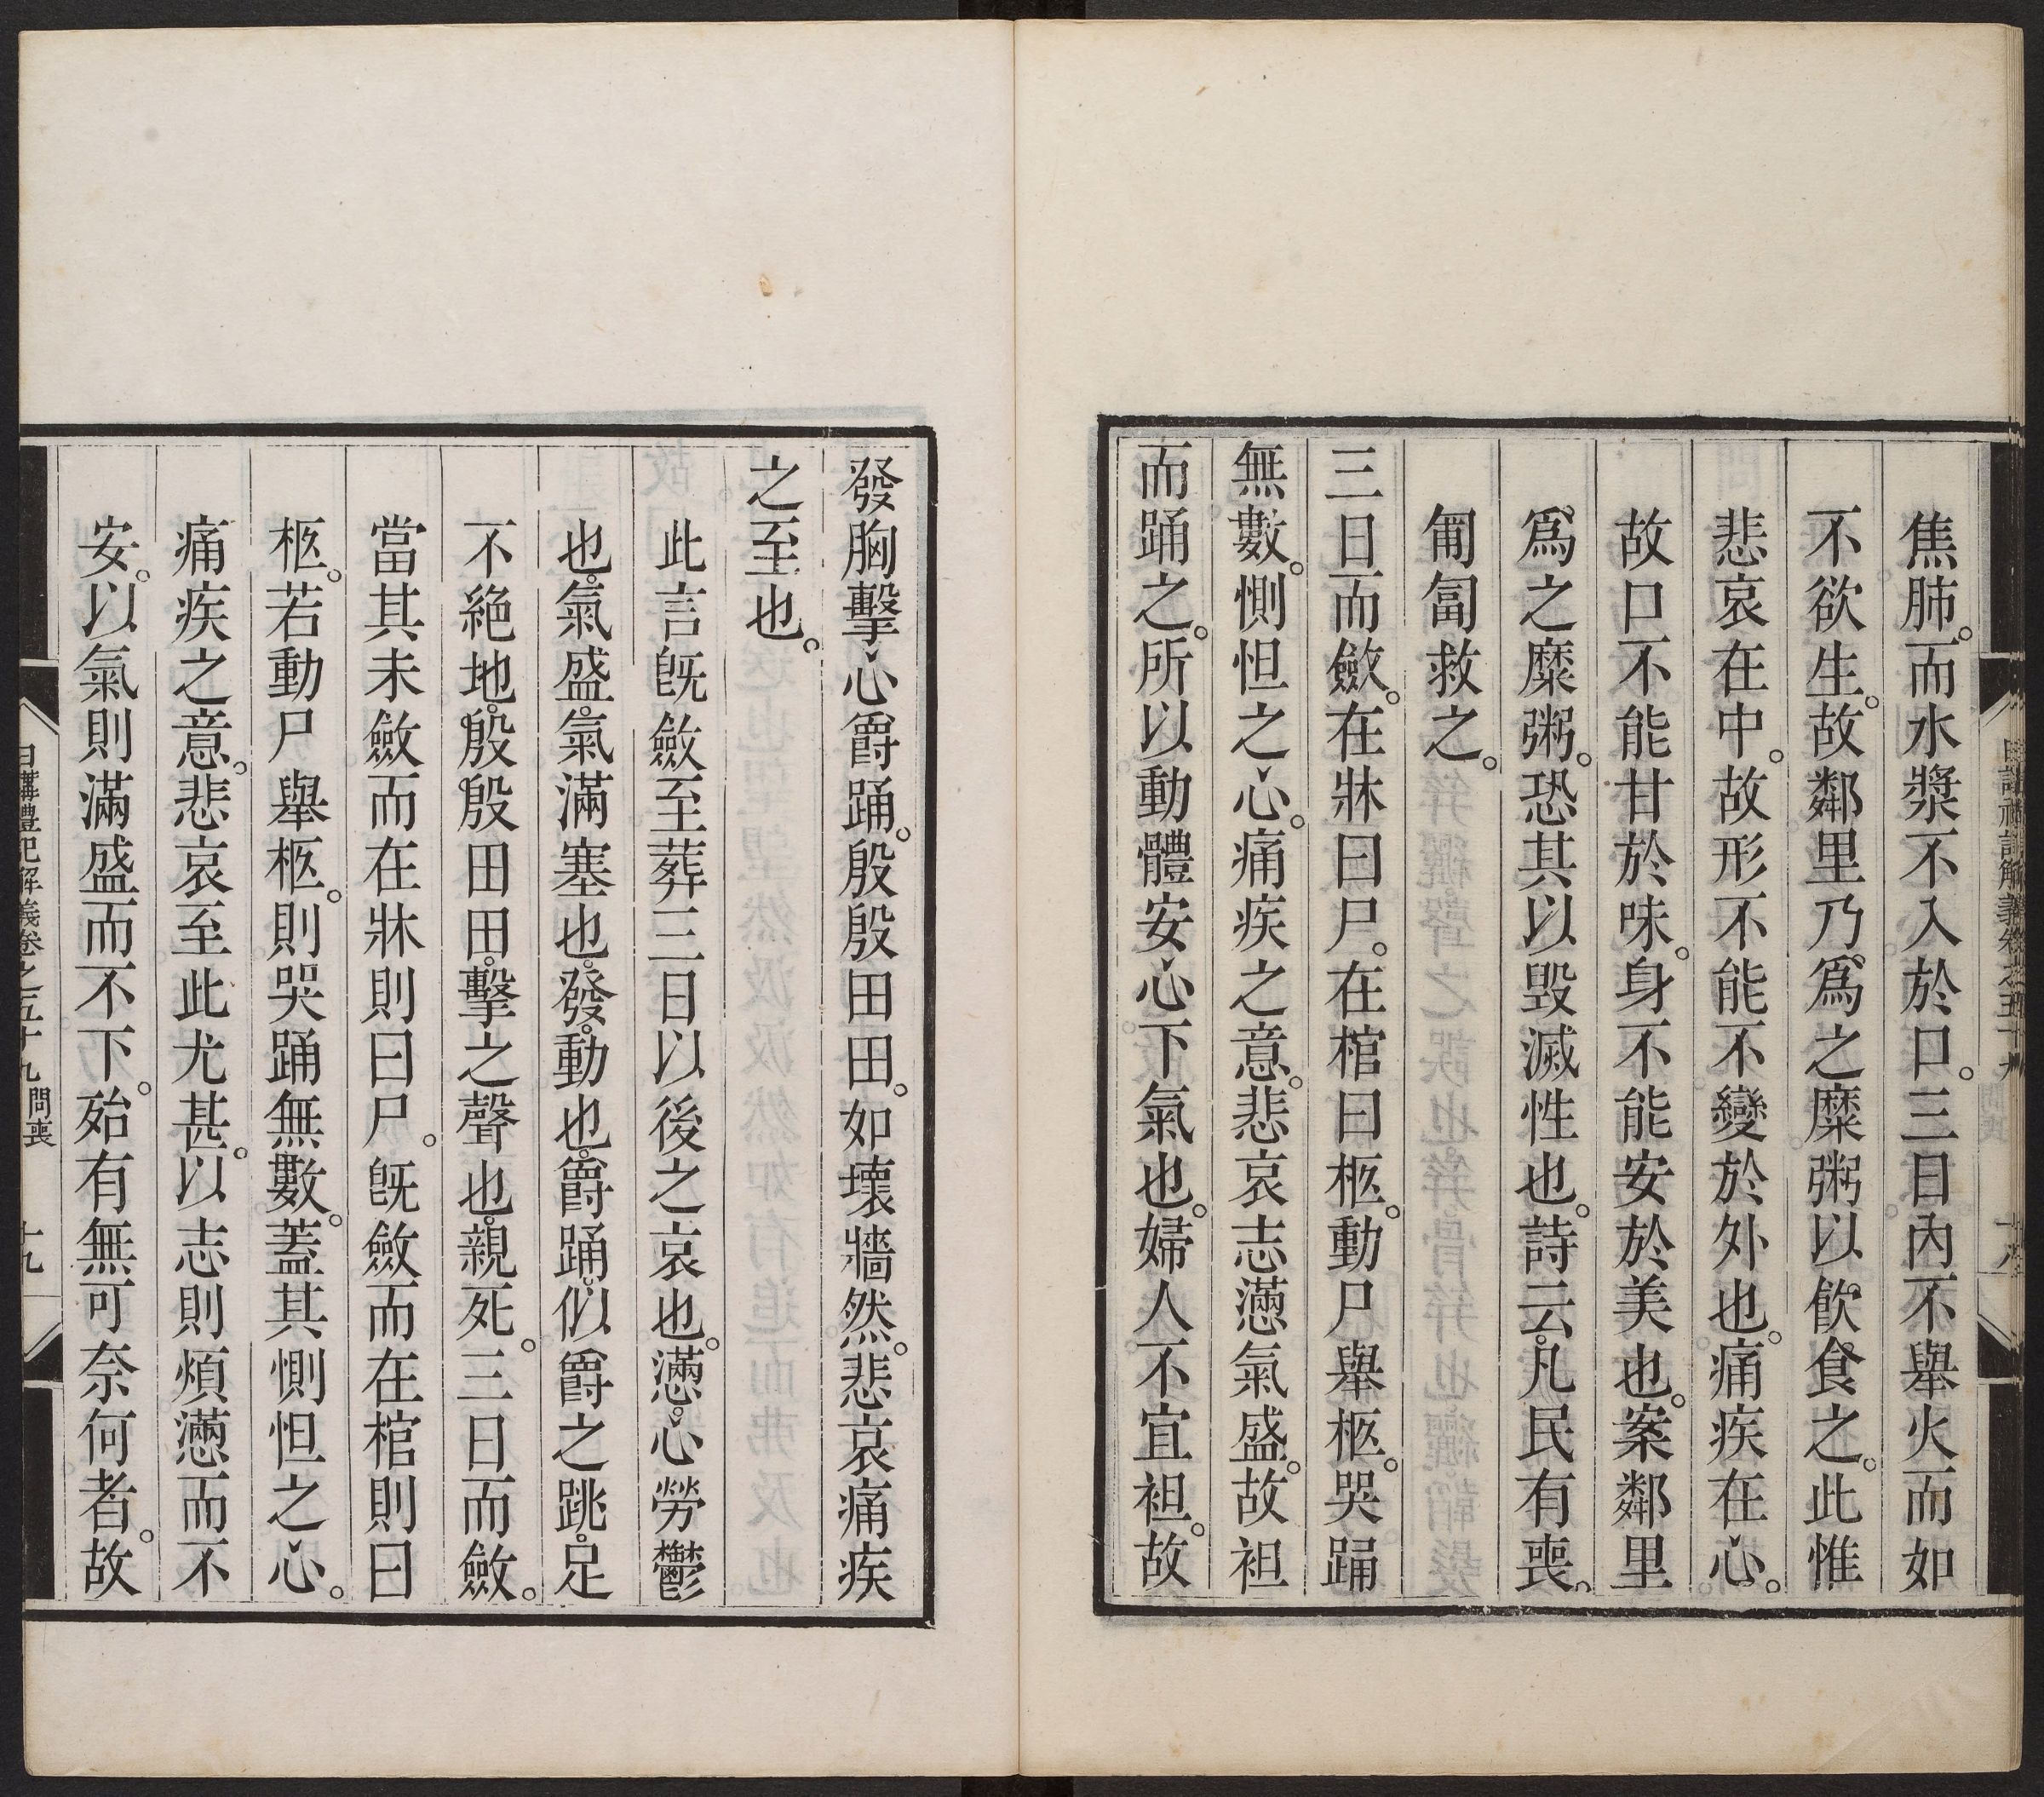 焦肺。而水漿不入於口。三日內不舉火而如
不欲生。故鄰里乃爲之糜粥以飮食之。此惟
悲哀在中。故形不能不變於外也。痛疾在心。
故口不能甘於味。身不能安於美也。案鄰里
爲之糜粥。恐其以毀滅性也。詩云。凡民有喪。
匍匐救之。
三日而斂。在牀曰尸。在棺曰柩。動尸舉柩。哭踊
無數。惻怛之心。痛疾之意。悲哀志懣氣盛。故袒
而踊之。所以動體安心下氣也。婦人不宜袒。故
發胸擊心爵踊。殷殷田田。如壞牆然。悲哀痛疾
之至也。
此言旣斂至葬三日以後之哀也。懣。心勞鬱
也。氣盛。氣滿塞也。發。動也。爵踊。似爵之跳。足
不絕地。殷殷田田。擊之聲也。親死。三日而斂。
當其未斂而在牀則曰尸。旣斂而在棺則曰
柩。若動尸舉柩。則哭踊無數。蓋其惻怛之心。
痛疾之意。悲哀至此尤甚。以志則煩懣而不
安。以氣則滿盛而不下。殆有無可奈何者。故
日講禮記解義卷之五十九 問喪 十九